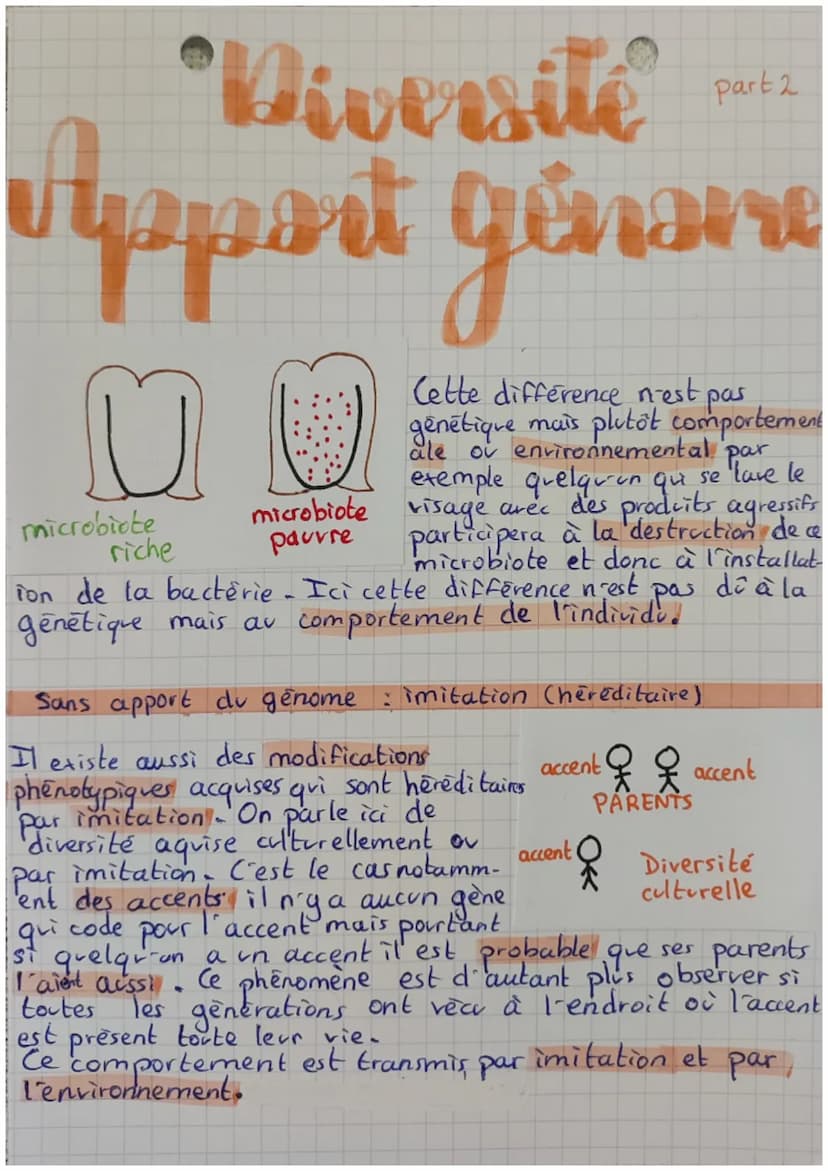 Diversité
part 2
Apport génome
Cette différence n'est pas
génétique mais plutôt comportement
ale ou environnemental, par
exemple quelqu'un qui se lave le
visage avec des produits agressifs
participera à la destruction de ce
microbiote et donc à l'installat-
ion de la bactérie. Ici cette différence n'est pas dû à la
génétique mais au comportement de l'individu.
microbiote
riche
microbiote
pauvre
Sans apport du génome : imitation (héréditaire)
Il existe aussi des modifications
phénotypiques acquises qui sont héréditaires
par imitation. On parle ici de
diversité aquise culturellement ou
par imitation. C'est le cas notamm-
ent des accents, il n'y a aucun gène
qui code pour l'accent mais pourtant
si quelqu'un a un accent il est probable que ses parents
l'aient aussi. Ce phénomène est d'autant plus observer si
toutes les générations ont vécu à l'endroit où l'accent
est présent toute leur vie.
Ce comportement est transmis par imitation et par
l'environnement.
accent
accent
PARENTS
accent
Diversité
culturelle